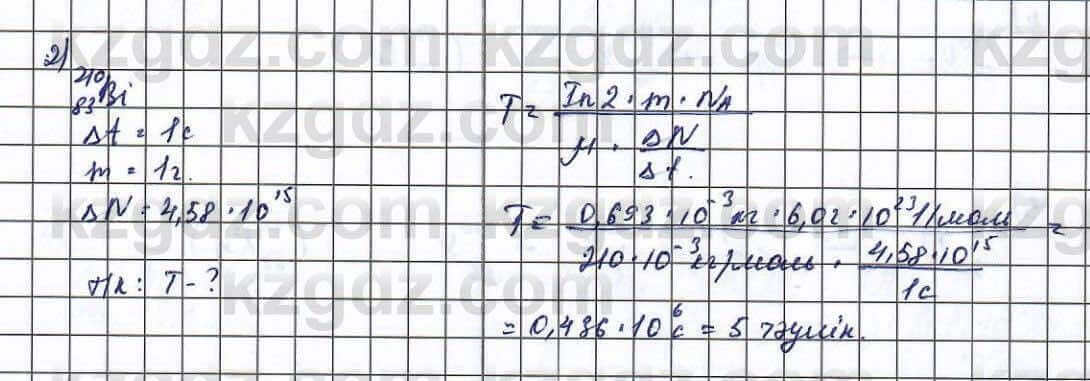 2)
²¹⁰₈₃Bi
Δt = 1с
m = 1г.
ΔN = 4,58 · 10¹⁵
Т/к: T - ?
T = ln 2 · m · N_A / (μ · ΔN/Δt.)
T = 0,693 · 10⁻³кг · 6,02 · 10²³ 1/моль / (210 · 10⁻³кг/моль · 4,58 · 10¹⁵/1с) =
= 0,436 · 10⁶ с = 5 тәулік.
kzgdz.com